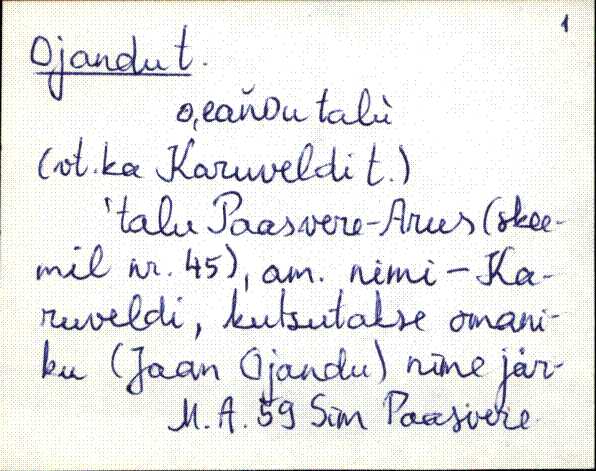 1
Ojandu t.
o̬eaňDu talù
(vt. ka Karuveldi t.)
'talu Paasvere-Arus (skee-
mil nr. 45), am. nimi – Ka-
ruveldi, kutsutakse omani-
ku (Jaan Ojandu) nime jär-
M. A. 59 Sim Paasvere